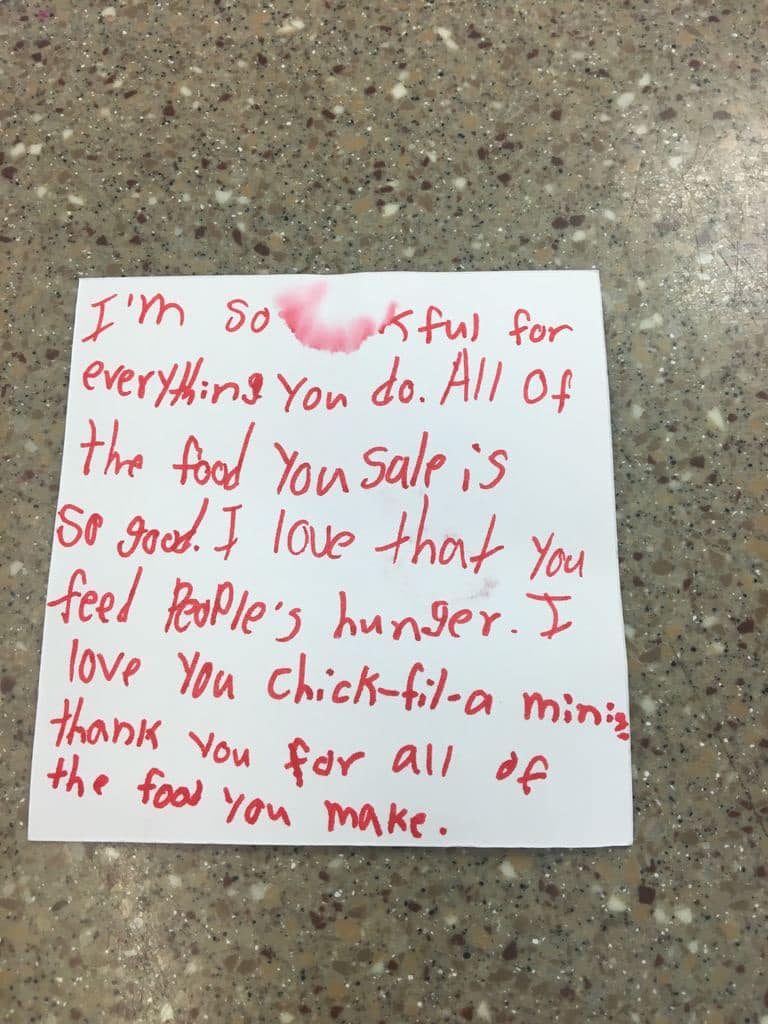 I'm so kful for
everything you do. All Of
the food you sale is
so good. I love that you
feed People's hunger. I
love you chick-fil-a minis
thank you for all of
the food you make.